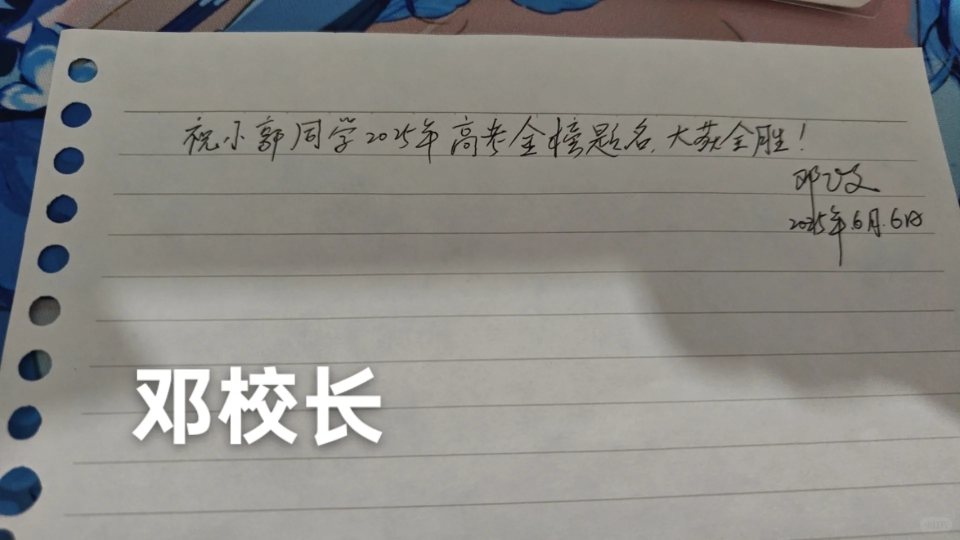 祝小郭同学2025年高考金榜题名,大获全胜!
邓
2025年6月6日
邓校长